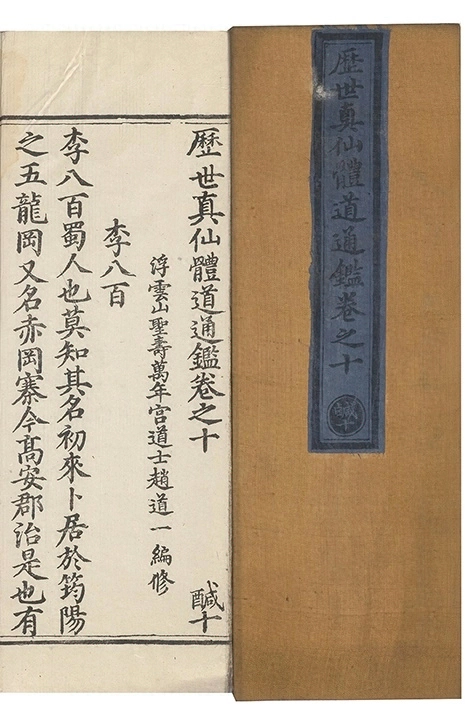 歷世真仙體道通鑑卷之十
鹹十
歷世真仙體道通鑑卷之十 鹹十
浮雲山聖壽萬年宮道士趙道一編修
李八百
李八百蜀人也莫知其名初來卜居於筠陽
之五龍岡又名赤岡寨今髙安郡治是也有